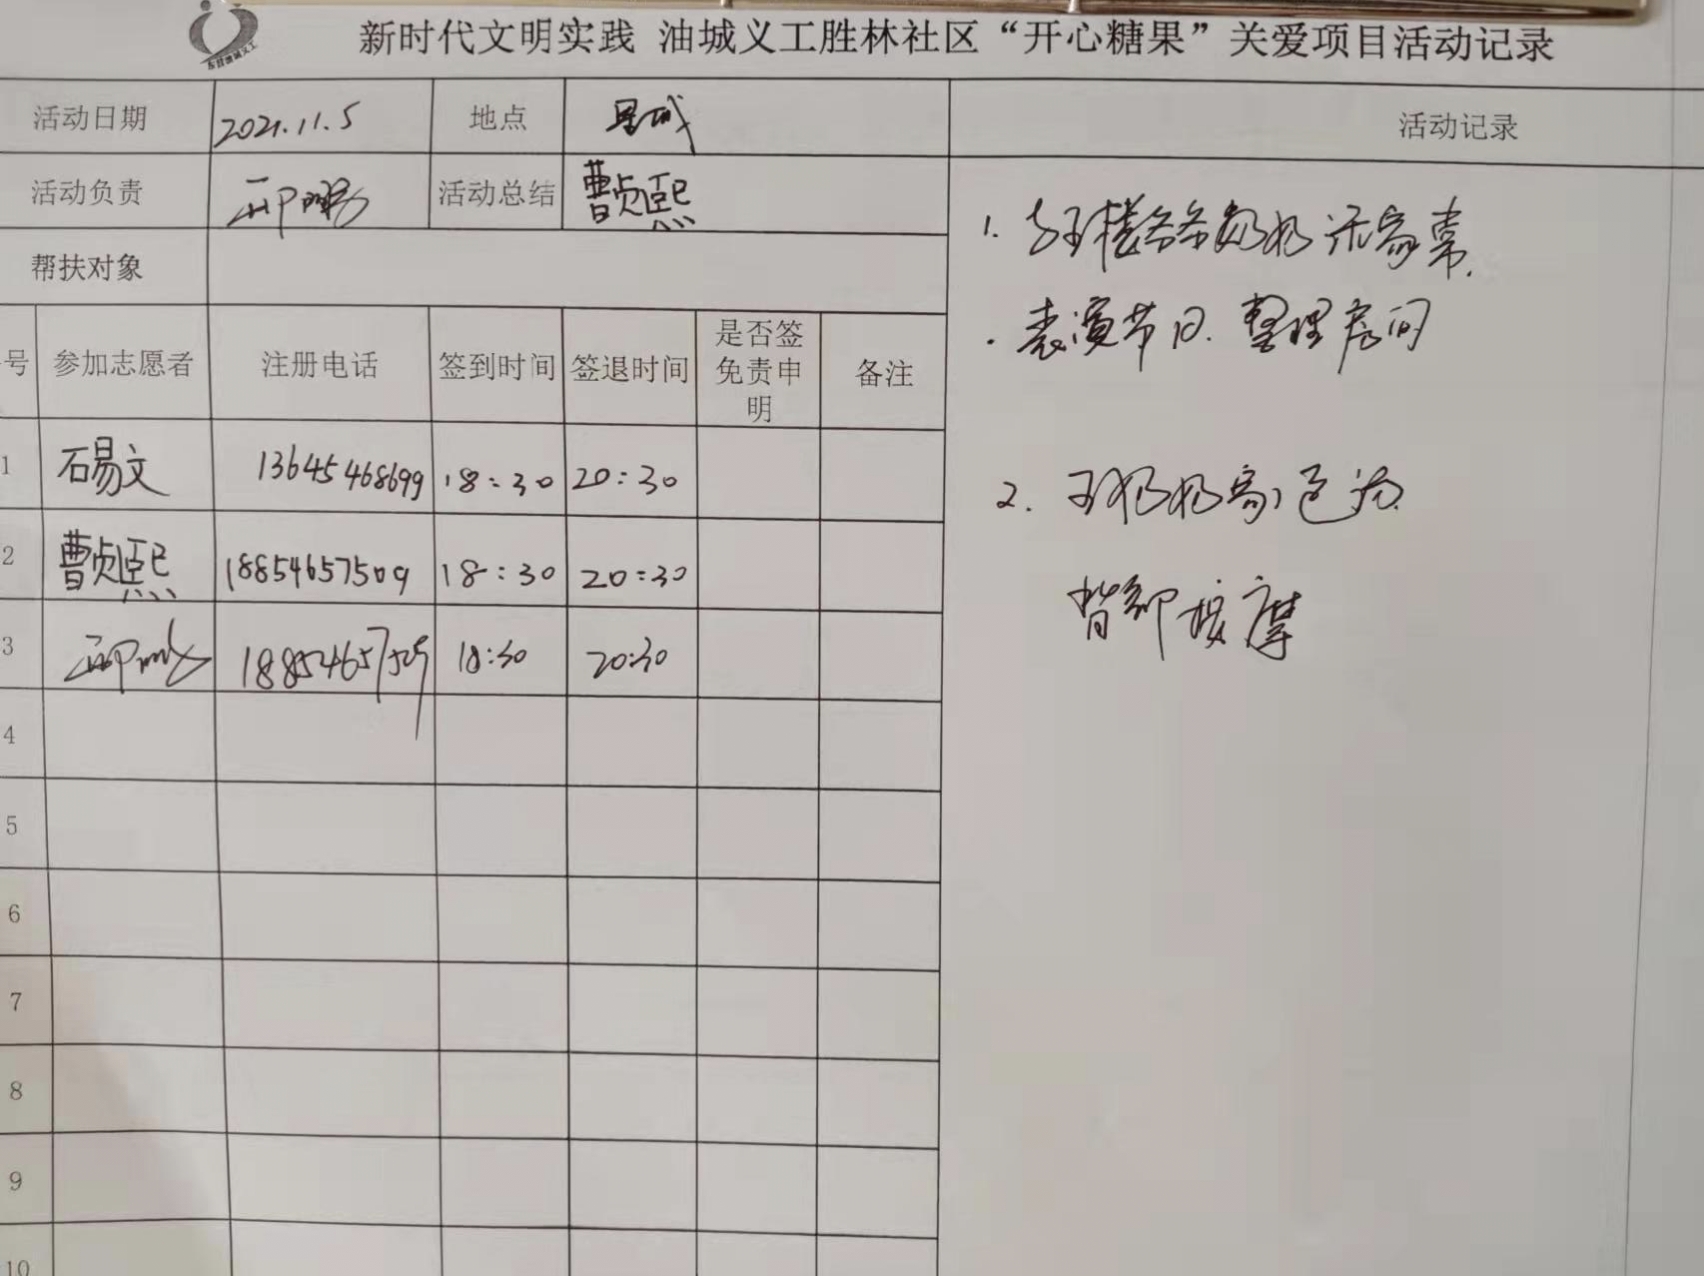 新时代文明实践 油城义工胜林社区“开心糖果”关爱项目活动记录
活动日期 2021.11.5 地点
活动记录
活动负责 活动总结 曹贞熙
帮扶对象
号 参加志愿者 注册电话 签到时间 签退时间 是否签免责申明 备注
1 石易文 13645468699 18:30 20:30
2 曹贞熙 18854657509 18:30 20:30
3 18:30 20:30
4
5
6
7
8
9
10
1. 爷爷奶奶 家常.
. 表演节目. 整理房间
2. 王奶奶
背部按摩